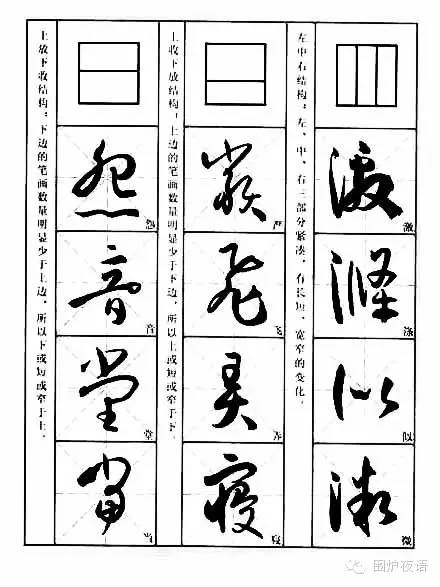 左中右结构：左、中、右三部分紧凑，有长短、宽窄的变化。
激
涤
似
微
上收下放结构：上边的笔画数量明显少于下边，所以上或短或窄于下。
严
飞
寝
上放下收结构：下边的笔画数量明显少于上边，所以下或短或窄于上。
怨
音
堂
当
围炉夜语